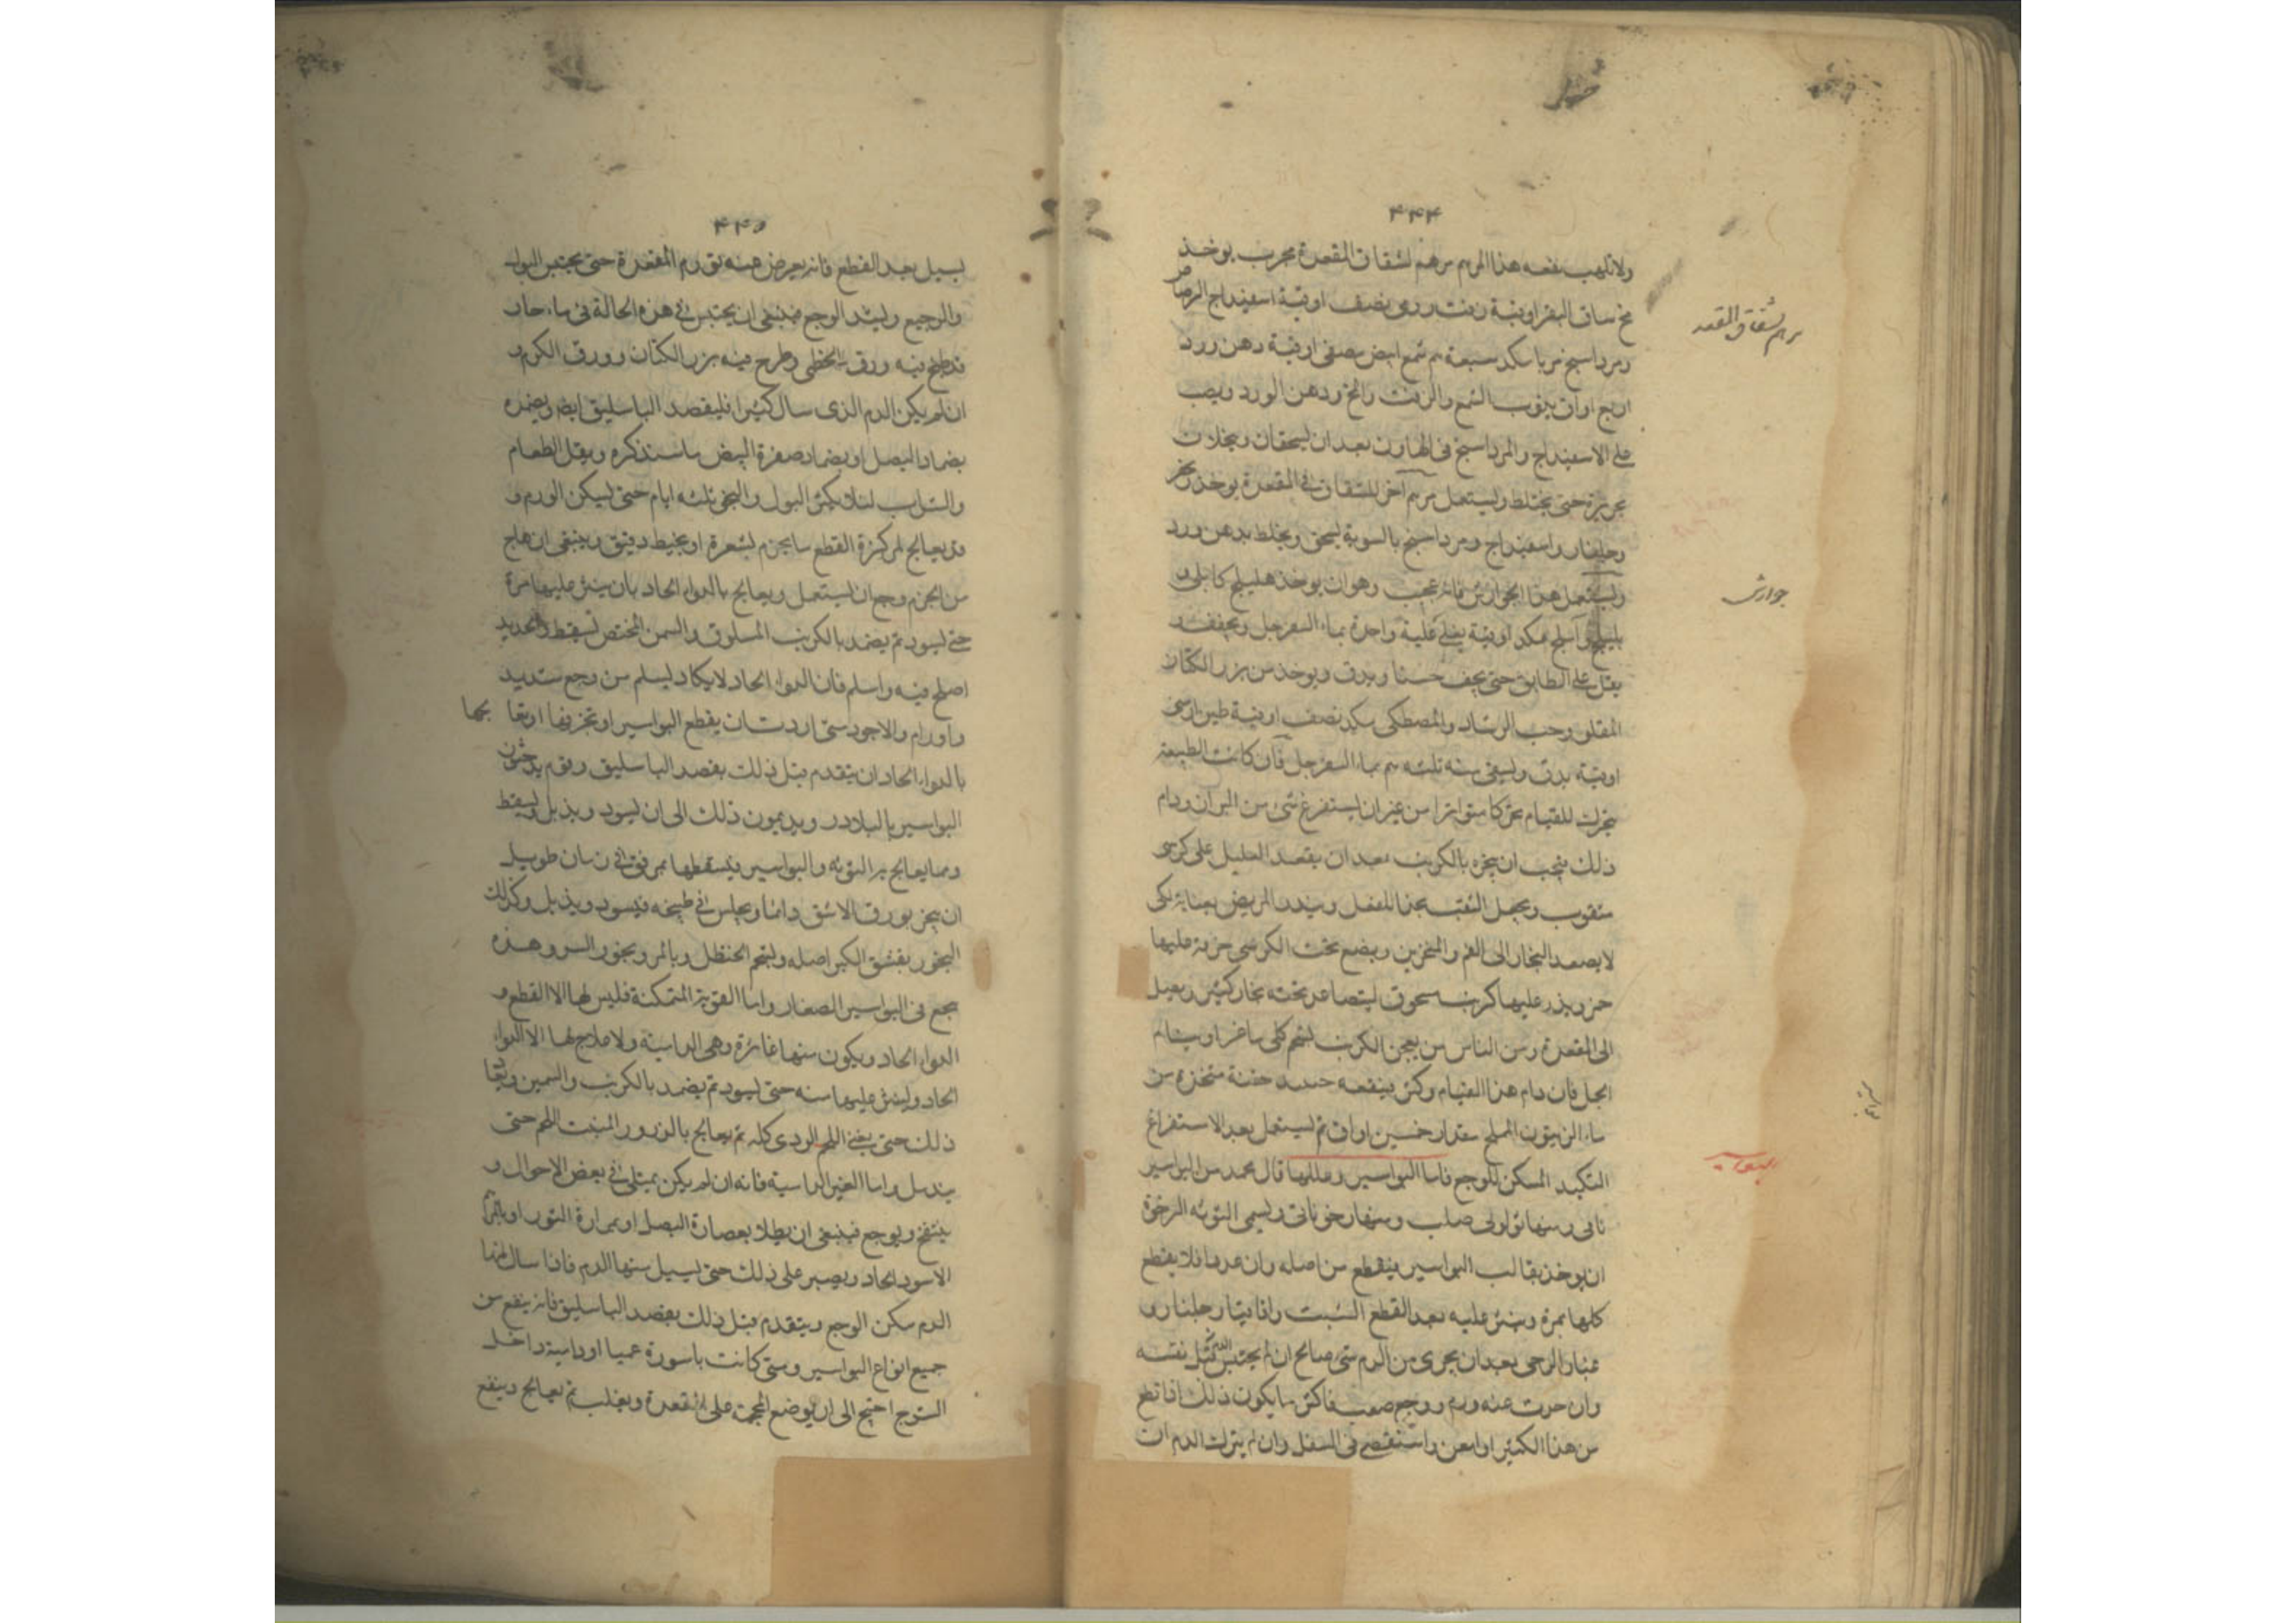 ۴۴۴
ولا تلهب نفعه هذا المرهم مرهم لشقاق المقعدة مجرب يوخذ
مخ ساق البقر اوقية زفت رومى نصف اوقية اسفيداج الرصاص
ومرداسنج مربا مكد سبعة م شمع ابيض مصفى اوقية دهن ورد
مرهم شقاق المقعد
اربع اواق يذوب الشمع والزفت والمخ ودهن الورد ويصب
على الاسفيداج والمرداسنج فى الهاون بعد ان يسحقان وينخلان
بحريرة حتى يختلط ويستعمل مرهم آخر للشقاق فى المقعدة يوخذ
وجلنار واسفيداج ومرداسنج بالسوية يسحق ويخلط بدهن ورد
ويستعمل هذا الجوارش فانه عجيب وهو ان يوخذ هليلج كابلى و
جوارش
بليلج وآملج مكد اوقية يغلى غلية واحدة بماء السفرجل ويجفف
يقلى على الطابق حتى يجف حسنا ويدق ويوخذ من بزر الكتان
المقلو وحب الرشاد والمصطكى مكد نصف اوقية طين ارمنى
اوقية يدق ويسقى منه ثلثه م بماء السفرجل فان كانت الطبيعة
يتحرك للقيام تحركا متواترا من غير ان يستفرغ شئ من البراز ودام
ذلك فيجب ان يبخره بالكبريت بعد ان يقعد العليل على كرسى
مثقوب ويجعل الثقب بحذا السفل ويتدثر المريض بعناية لكى
لا يصعد البخار الى الفم والمنخرين ويضع تحت الكرسى خزفة عليها
جمر ويذر عليها كبريت مسحوق ليتصاعد تحته بخار كثير ويصل
الى المقعدة ومن الناس من يعجن الكبريت بشحم كلى ماعز او سنام
الجمل فان دام هذا القيام وكثر ينفعه حينئذ حقنة متخذة من
ماء الزيتون المملح مقدار خمسين اواق ثم يستعمل بعد الاستفراغ
التكميد المسكن للوجع فاما البواسير وعللها قال محمد من البواسير
البواسير
ناتى ومنها ثؤلولى صلب ومنها رخو ناتى ويسمى التوثه الرخوة
ان يوخذ بقالب البواسير فيقطع من اصله وان عددا فلا يقطع
كلها بمرة وينثر عليه بعد القطع الشبت واقاقيا وجلنار و
غبار الرحى بعد ان يجرى من الدم شئ صالح ان لم يحتبس الدم من قبل نفسه
وان حدث عنه ورم ووجع صعب فاكثر ما يكون ذلك اذا قطع
من هذا الكثير او امعن واستقصى فى السفل وان لم يترك الدم ان
۴۴۵
يسيل بعد القطع فانه يعرض عنه تورم المقعدة حتى يحتبس البول
والرجيع ويشتد الوجع فينبغى ان يجلس فى هذه الحالة فى ماء حار
قد طبخ فيه ورق الخطمى وطرح فيه بزر الكتان وورق الكرم و
ان لم يكن الدم الذى سال كثيرا فليفصد الباسليق ايضا ويضمده
بضماد البصل او بضماد صفرة البيض ما سنذكره ويقل الطعام
والشراب لئلا يكثر البول والنجو ثلثه ايام حتى يسكن الورم و
قد يعالج لمن كره القطع ما يحزم بشعرة او بخيط دقيق وينبغى ان هاج
من الحزم وجع ان يستعمل ويعالج بالدواء الحاد بان ينثر عليها مرة
حتى يسود ثم يضمد بالكرنب المسلوق والسمن المختص ليسقط والحديد
اصلح فيه واسلم فان الدواء الحاد لا يكاد يسلم من وجع شديد
واورام والاجود متى اردت ان يقطع البواسير او تخزيقها او تعالجها
بالدواء الحاد ان يتقدم قبل ذلك بفصد الباسليق وقوم يدخنون
البواسير بالبلادر ويديمون ذلك الى ان يسود ويذبل ويسقط
ومما يعالج به التوثه والبواسير فيسقطها برفق فى زمان طويل
ان يبخر بورق الاشق دائما ويجلس فى طبيخه فيسود ويذبل وكذلك
البخور بقشر الكبر اصله وشحم الحنظل وبالمر وبجوز السرو وهذه
ينجع فى البواسير الصغار واما القوية المتمكنة فليس لها الا القطع و
الدواء الحاد ويكون منها غائرة وهى الدامية ولا علاج لها الا الدواء
الحاد ولينثر عليها منه حتى يسود ثم يضمد بالكرنب والسمن
ذلك حتى يفنى اللحم الردى كله ثم يعالج بالذرور المنبت اللحم حتى
يندمل واما الغير الدامية فانه ان لم يكن يمتلى فى بعض الاحوال و
ينتفخ ويوجع فينبغى ان يطلا بعصارة البصل او بمرارة الثور او
الاسود الحاد ويصبر على ذلك حتى يسيل منها الدم فاذا سال منها
الدم سكن الوجع ويتقدم قبل ذلك بفصد الباسليق فانه ينفع من
جميع انواع البواسير ومتى كانت باسورة عميا او دامية داخل
الشرج احتيج الى ان يوضع المحجمة على المقعدة ويقلب ثم يعالج وينفع